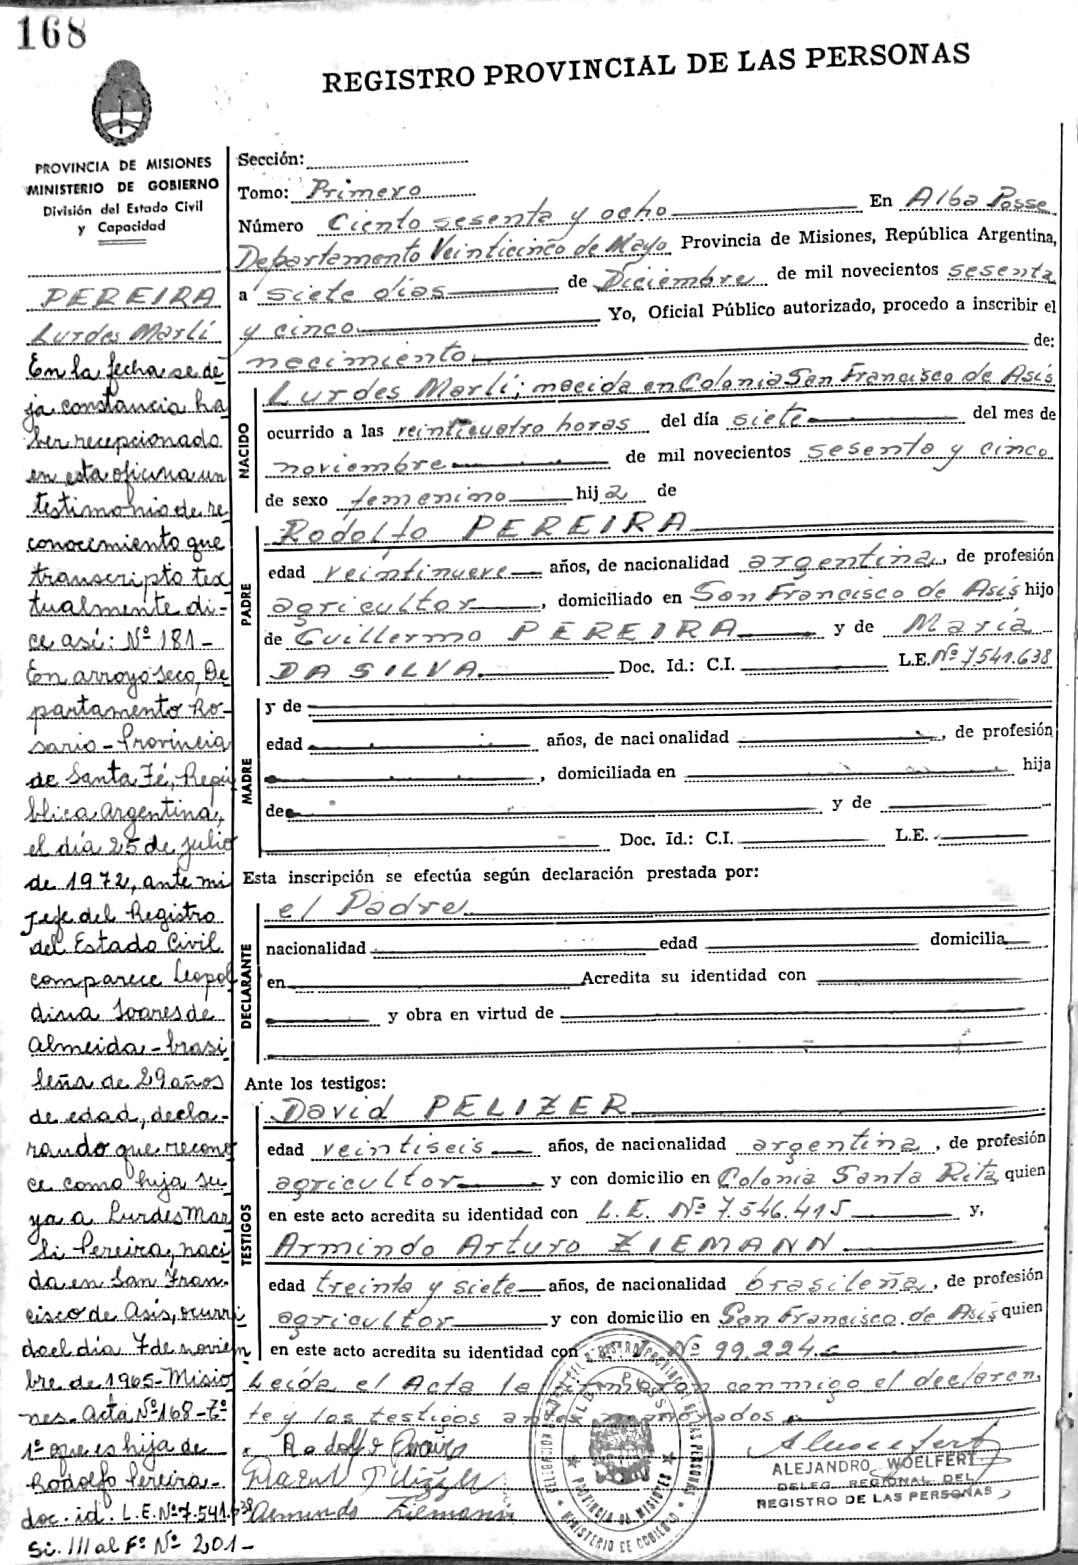 168
REGISTRO PROVINCIAL DE LAS PERSONAS
PROVINCIA DE MISIONES
MINISTERIO DE GOBIERNO
División del Estado Civil
y Capacidad
PEREIRA
Lurdes Marli
En la fecha se de
ja constancia ha
ber recepcionado
en esta oficina un
testimonio de re
conocimiento que
transcripto tex
tualmente di-
ce así: Nº 181-
En arroyo Seco, De
partamento Ro-
sario - Provincia
de Santa Fé, Repú
blica Argentina,
el día 25 de julio
de 1972, ante mi
Jefe del Registro
del Estado Civil
comparece Leopol
dina Soares de
Almeida - brasi
leña de 29 años
de edad, decla-
rando que recono
ce como hija su
ya a Lurdes Mar
li Pereira, naci
da en San Fran-
cisco de Asis, ocurri
do el día 7 de noviem
bre de 1965 - Misio
nes. Acta Nº 168 - Tº
1º que es hija de
Rodolfo Pereira -
doc. id: L.E. Nº 7.541.638
Sc. III al Fº Nº 201-
Sección:
Tomo: Primero
Número Ciento sesenta y ocho En Alba Posse
Departamento Veinticinco de Mayo Provincia de Misiones, República Argentina,
a siete días de Diciembre de mil novecientos sesenta
y cinco Yo, Oficial Público autorizado, procedo a inscribir el
necimiento de:
NACIDO
Lurdes Marli; nacida en Colonia San Francisco de Asís
ocurrido a las veinticuatro horas del día siete del mes de
noviembre de mil novecientos sesenta y cinco
de sexo femenino hija de
PADRE
Rodolfo PEREIRA
edad veintinueve años, de nacionalidad argentina, de profesión
agricultor, domiciliado en San Francisco de Asís hijo
de Guillermo PEREIRA y de María
DA SILVA. Doc. Id.: C.I. L.E. Nº 7541.638
MADRE
y de
edad años, de nacionalidad , de profesión
, domiciliada en hija
de y de
Doc. Id.: C.I. L.E.
Esta inscripción se efectúa según declaración prestada por:
DECLARANTE
el Padre
nacionalidad edad domicilia
en Acredita su identidad con
y obra en virtud de
Ante los testigos:
TESTIGOS
David PELIZER
edad veintiseis años, de nacionalidad argentina, de profesión
agricultor y con domicilio en Colonia Santa Rita quien
en este acto acredita su identidad con L.E. Nº 7.546.415 y,
Armindo Arturo ZIEMANN
edad treinta y siete años, de nacionalidad brasileña, de profesión
agricultor y con domicilio en San Francisco de Asís quien
en este acto acredita su identidad con Nº 99.224.
Leída el Acta la firmaron conmigo el declaran
te y los testigos
Rodolfo
Armindo Ziemann
PROVINCIA DE MISIONES
MINISTERIO DE GOBIERNO
ALEJANDRO WOELFERT
DELEG. REGIONAL DEL
REGISTRO DE LAS PERSONAS